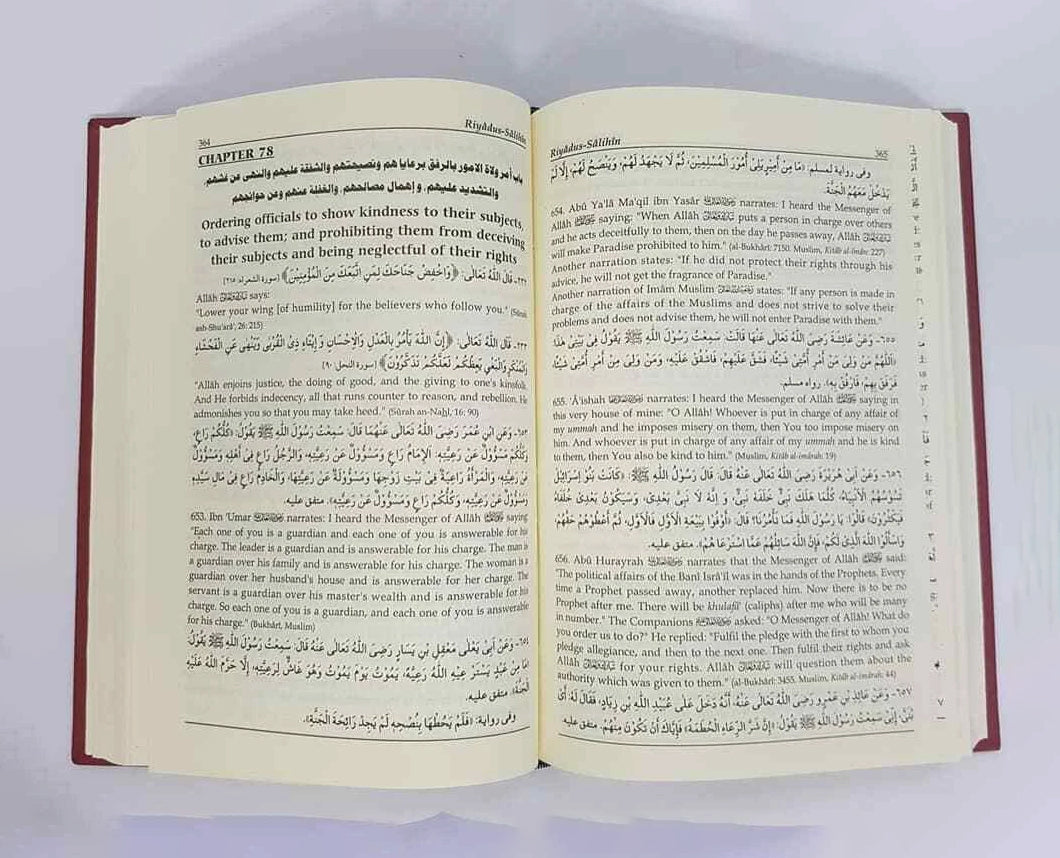 364
Riyâdus-Sâlihîn
CHAPTER 78
باب أمر ولاة الامور بالرفق برعاياهم ونصيحتهم والشفقة عليهم والنهى عن غشهم،
والتشديد عليهم، وإهمال مصالحهم، والغفلة عنهم وعن حوائجهم
Ordering officials to show kindness to their subjects,
to advise them; and prohibiting them from deceiving
their subjects and being neglectful of their rights
٢٣٢- قَالَ اللَّهُ تَعَالَى: ﴿وَاخْفِضْ جَنَاحَكَ لِمَنِ اتَّبَعَكَ مِنَ الْمُؤْمِنِينَ﴾ (سورة الشعراء: ٢١٥)
Allâh says:
"Lower your wing [of humility] for the believers who follow you." (Sûrah
ash-Shu'arâ', 26: 215)
٢٣٣- قَالَ اللَّهُ تَعَالَى: ﴿إِنَّ اللَّهَ يَأْمُرُ بِالْعَدْلِ وَالْإِحْسَانِ وَإِيتَاءِ ذِي الْقُرْبَى وَيَنْهَى عَنِ الْفَحْشَاءِ
وَالْمُنْكَرِ وَالْبَغْيِ يَعِظُكُمْ لَعَلَّكُمْ تَذَكَّرُونَ﴾ (سورة النحل: ٩٠)
"Allâh enjoins justice, the doing of good, and the giving to one's kinsfolk.
And He forbids indecency, all that runs counter to reason, and rebellion. He
admonishes you so that you may take heed." (Sûrah an-Nahl, 16: 90)
٦٥٣- وَعَنِ ابْنِ عُمَرَ رَضِيَ اللَّهُ تَعَالَى عَنْهُمَا قَالَ: سَمِعْتُ رَسُولَ اللَّهِ ﷺ يَقُولُ: «كُلُّكُمْ رَاعٍ،
وَكُلُّكُمْ مَسْؤُولٌ عَنْ رَعِيَّتِهِ: الْإِمَامُ رَاعٍ وَمَسْؤُولٌ عَنْ رَعِيَّتِهِ، وَالرَّجُلُ رَاعٍ فِي أَهْلِهِ وَمَسْؤُولٌ
عَنْ رَعِيَّتِهِ، وَالْمَرْأَةُ رَاعِيَةٌ فِي بَيْتِ زَوْجِهَا وَمَسْؤُولَةٌ عَنْ رَعِيَّتِهَا، وَالْخَادِمُ رَاعٍ فِي مَالِ سَيِّدِهِ
وَمَسْؤُولٌ عَنْ رَعِيَّتِهِ، وَكُلُّكُمْ رَاعٍ وَمَسْؤُولٌ عَنْ رَعِيَّتِهِ». متفق عليه.
653. Ibn 'Umar narrates: I heard the Messenger of Allâh ﷺ saying
"Each one of you is a guardian and each one of you is answerable for his
charge. The leader is a guardian and is answerable for his charge. The man is
a guardian over his family and is answerable for his charge. The woman is a
guardian over her husband's house and is answerable for her charge. The
servant is a guardian over his master's wealth and is answerable for his
charge. So each one of you is a guardian, and each one of you is answerable
for his charge." (Bukhârî, Muslim)
٦٥٤- وَعَنْ أَبِي يَعْلَى مَعْقِلِ بْنِ يَسَارٍ رَضِيَ اللَّهُ تَعَالَى عَنْهُ قَالَ: سَمِعْتُ رَسُولَ اللَّهِ ﷺ يَقُولُ:
«مَا مِنْ عَبْدٍ يَسْتَرْعِيهِ اللَّهُ رَعِيَّةً، يَمُوتُ يَوْمَ يَمُوتُ وَهُوَ غَاشٌّ لِرَعِيَّتِهِ، إِلَّا حَرَّمَ اللَّهُ عَلَيْهِ
الْجَنَّةَ». متفق عليه.
وَفِي رِوَايَةٍ: «فَلَمْ يَحُطْهَا بِنُصْحِهِ لَمْ يَجِدْ رَائِحَةَ الْجَنَّةِ».
Riyâdus-Sâlihîn
365
وفي رواية لمسلم: «مَا مِنْ أَمِيرٍ يَلِي أُمُورَ الْمُسْلِمِينَ، ثُمَّ لَا يَجْهَدُ لَهُمْ، وَيَنْصَحُ لَهُمْ، إِلَّا لَمْ
يَدْخُلْ مَعَهُمُ الْجَنَّةَ».
654. Abû Ya'lâ Ma'qil ibn Yasâr narrates: I heard the Messenger of
Allâh ﷺ saying: "When Allâh puts a person in charge over others
and he acts deceitfully to them, then on the day he passes away, Allâh
will make Paradise prohibited to him." (al-Bukhârî: 7150. Muslim, Kitâb al-îmân: 227)
Another narration states: "If he did not protect their rights through his
advice, he will not get the fragrance of Paradise."
Another narration of Imâm Muslim states: "If any person is made in
charge of the affairs of the Muslims and does not strive to solve their
problems and does not advise them, he will not enter Paradise with them."
٦٥٥- وَعَنْ عَائِشَةَ رَضِيَ اللَّهُ تَعَالَى عَنْهَا قَالَتْ: سَمِعْتُ رَسُولَ اللَّهِ ﷺ يَقُولُ فِي بَيْتِي هَذَا:
«اللَّهُمَّ مَنْ وَلِيَ مِنْ أَمْرِ أُمَّتِي شَيْئًا، فَشَقَّ عَلَيْهِمْ، فَاشْقُقْ عَلَيْهِ، وَمَنْ وَلِيَ مِنْ أَمْرِ أُمَّتِي شَيْئًا،
فَرَفَقَ بِهِمْ، فَارْفُقْ بِهِ». رواه مسلم.
655. 'Â'ishah narrates: I heard the Messenger of Allâh ﷺ saying in
this very house of mine: "O Allâh! Whoever is put in charge of any affair of
my ummah and he imposes misery on them, then You too impose misery on
him. And whoever is put in charge of any affair of my ummah and he is kind
to them, then You also be kind to him." (Muslim, Kitâb al-imârah: 19)
٦٥٦- وَعَنْ أَبِي هُرَيْرَةَ رَضِيَ اللَّهُ تَعَالَى عَنْهُ قَالَ: قَالَ رَسُولُ اللَّهِ ﷺ: «كَانَتْ بَنُو إِسْرَائِيلَ
تَسُوسُهُمُ الْأَنْبِيَاءُ، كُلَّمَا هَلَكَ نَبِيٌّ خَلَفَهُ نَبِيٌّ، وَإِنَّهُ لَا نَبِيَّ بَعْدِي، وَسَيَكُونُ بَعْدِي خُلَفَاءُ
فَيَكْثُرُونَ» قَالُوا: يَا رَسُولَ اللَّهِ فَمَا تَأْمُرُنَا؟ قَالَ: «أَوْفُوا بِبَيْعَةِ الْأَوَّلِ فَالْأَوَّلِ، ثُمَّ أَعْطُوهُمْ حَقَّهُمْ،
وَاسْأَلُوا اللَّهَ الَّذِي لَكُمْ، فَإِنَّ اللَّهَ سَائِلُهُمْ عَمَّا اسْتَرْعَاهُمْ». متفق عليه.
656. Abû Hurayrah narrates that the Messenger of Allâh ﷺ said:
"The political affairs of the Banî Isrâ'îl was in the hands of the Prophets. Every
time a Prophet passed away, another replaced him. Now there is to be no
Prophet after me. There will be khulafâ' (caliphs) after me who will be many
in number." The Companions asked: "O Messenger of Allâh! What do
you order us to do?" He replied: "Fulfil the pledge with the first to whom you
pledge allegiance, and then to the next one. Then fulfil their rights and ask
Allâh for your rights. Allâh will question them about the
authority which was given to them." (al-Bukhârî: 3455. Muslim, Kitâb al-imârah: 44)
٦٥٧- وَعَنْ عَائِذِ بْنِ عَمْرٍو رَضِيَ اللَّهُ تَعَالَى عَنْهُ، أَنَّهُ دَخَلَ عَلَى عُبَيْدِ اللَّهِ بْنِ زِيَادٍ، فَقَالَ لَهُ: أَيْ
بُنَيَّ، إِنِّي سَمِعْتُ رَسُولَ اللَّهِ ﷺ يَقُولُ: «إِنَّ شَرَّ الرِّعَاءِ الْحُطَمَةُ» فَإِيَّاكَ أَنْ تَكُونَ مِنْهُمْ. متفق عليه